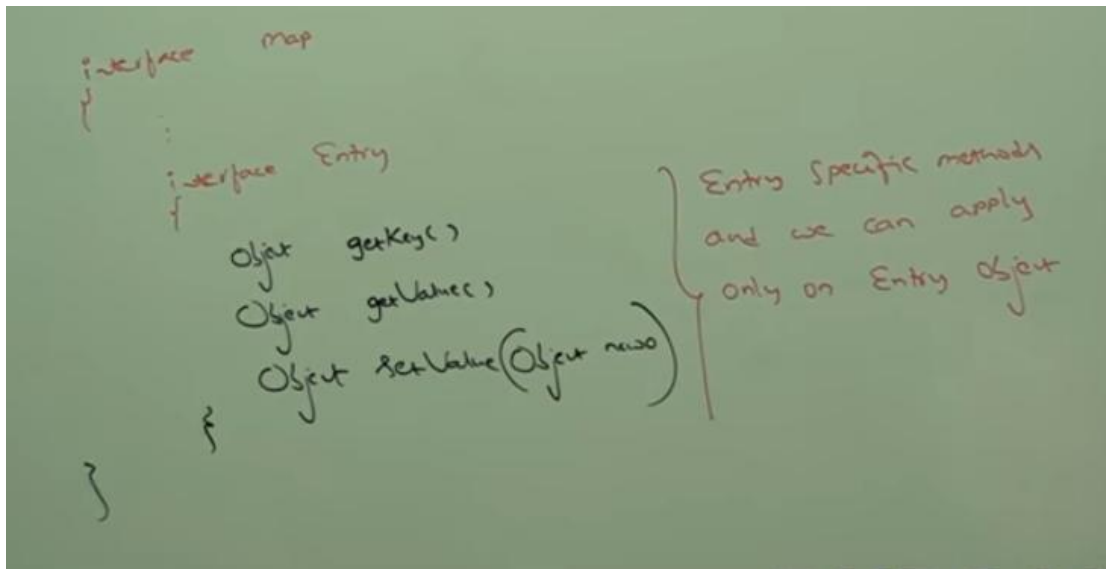 interface map
{
:
interface Entry
{
Object getKey()
Object getValue()
Object setValue(Object newo)
}
}
Entry Specific methods
and we can apply
only on Entry Object